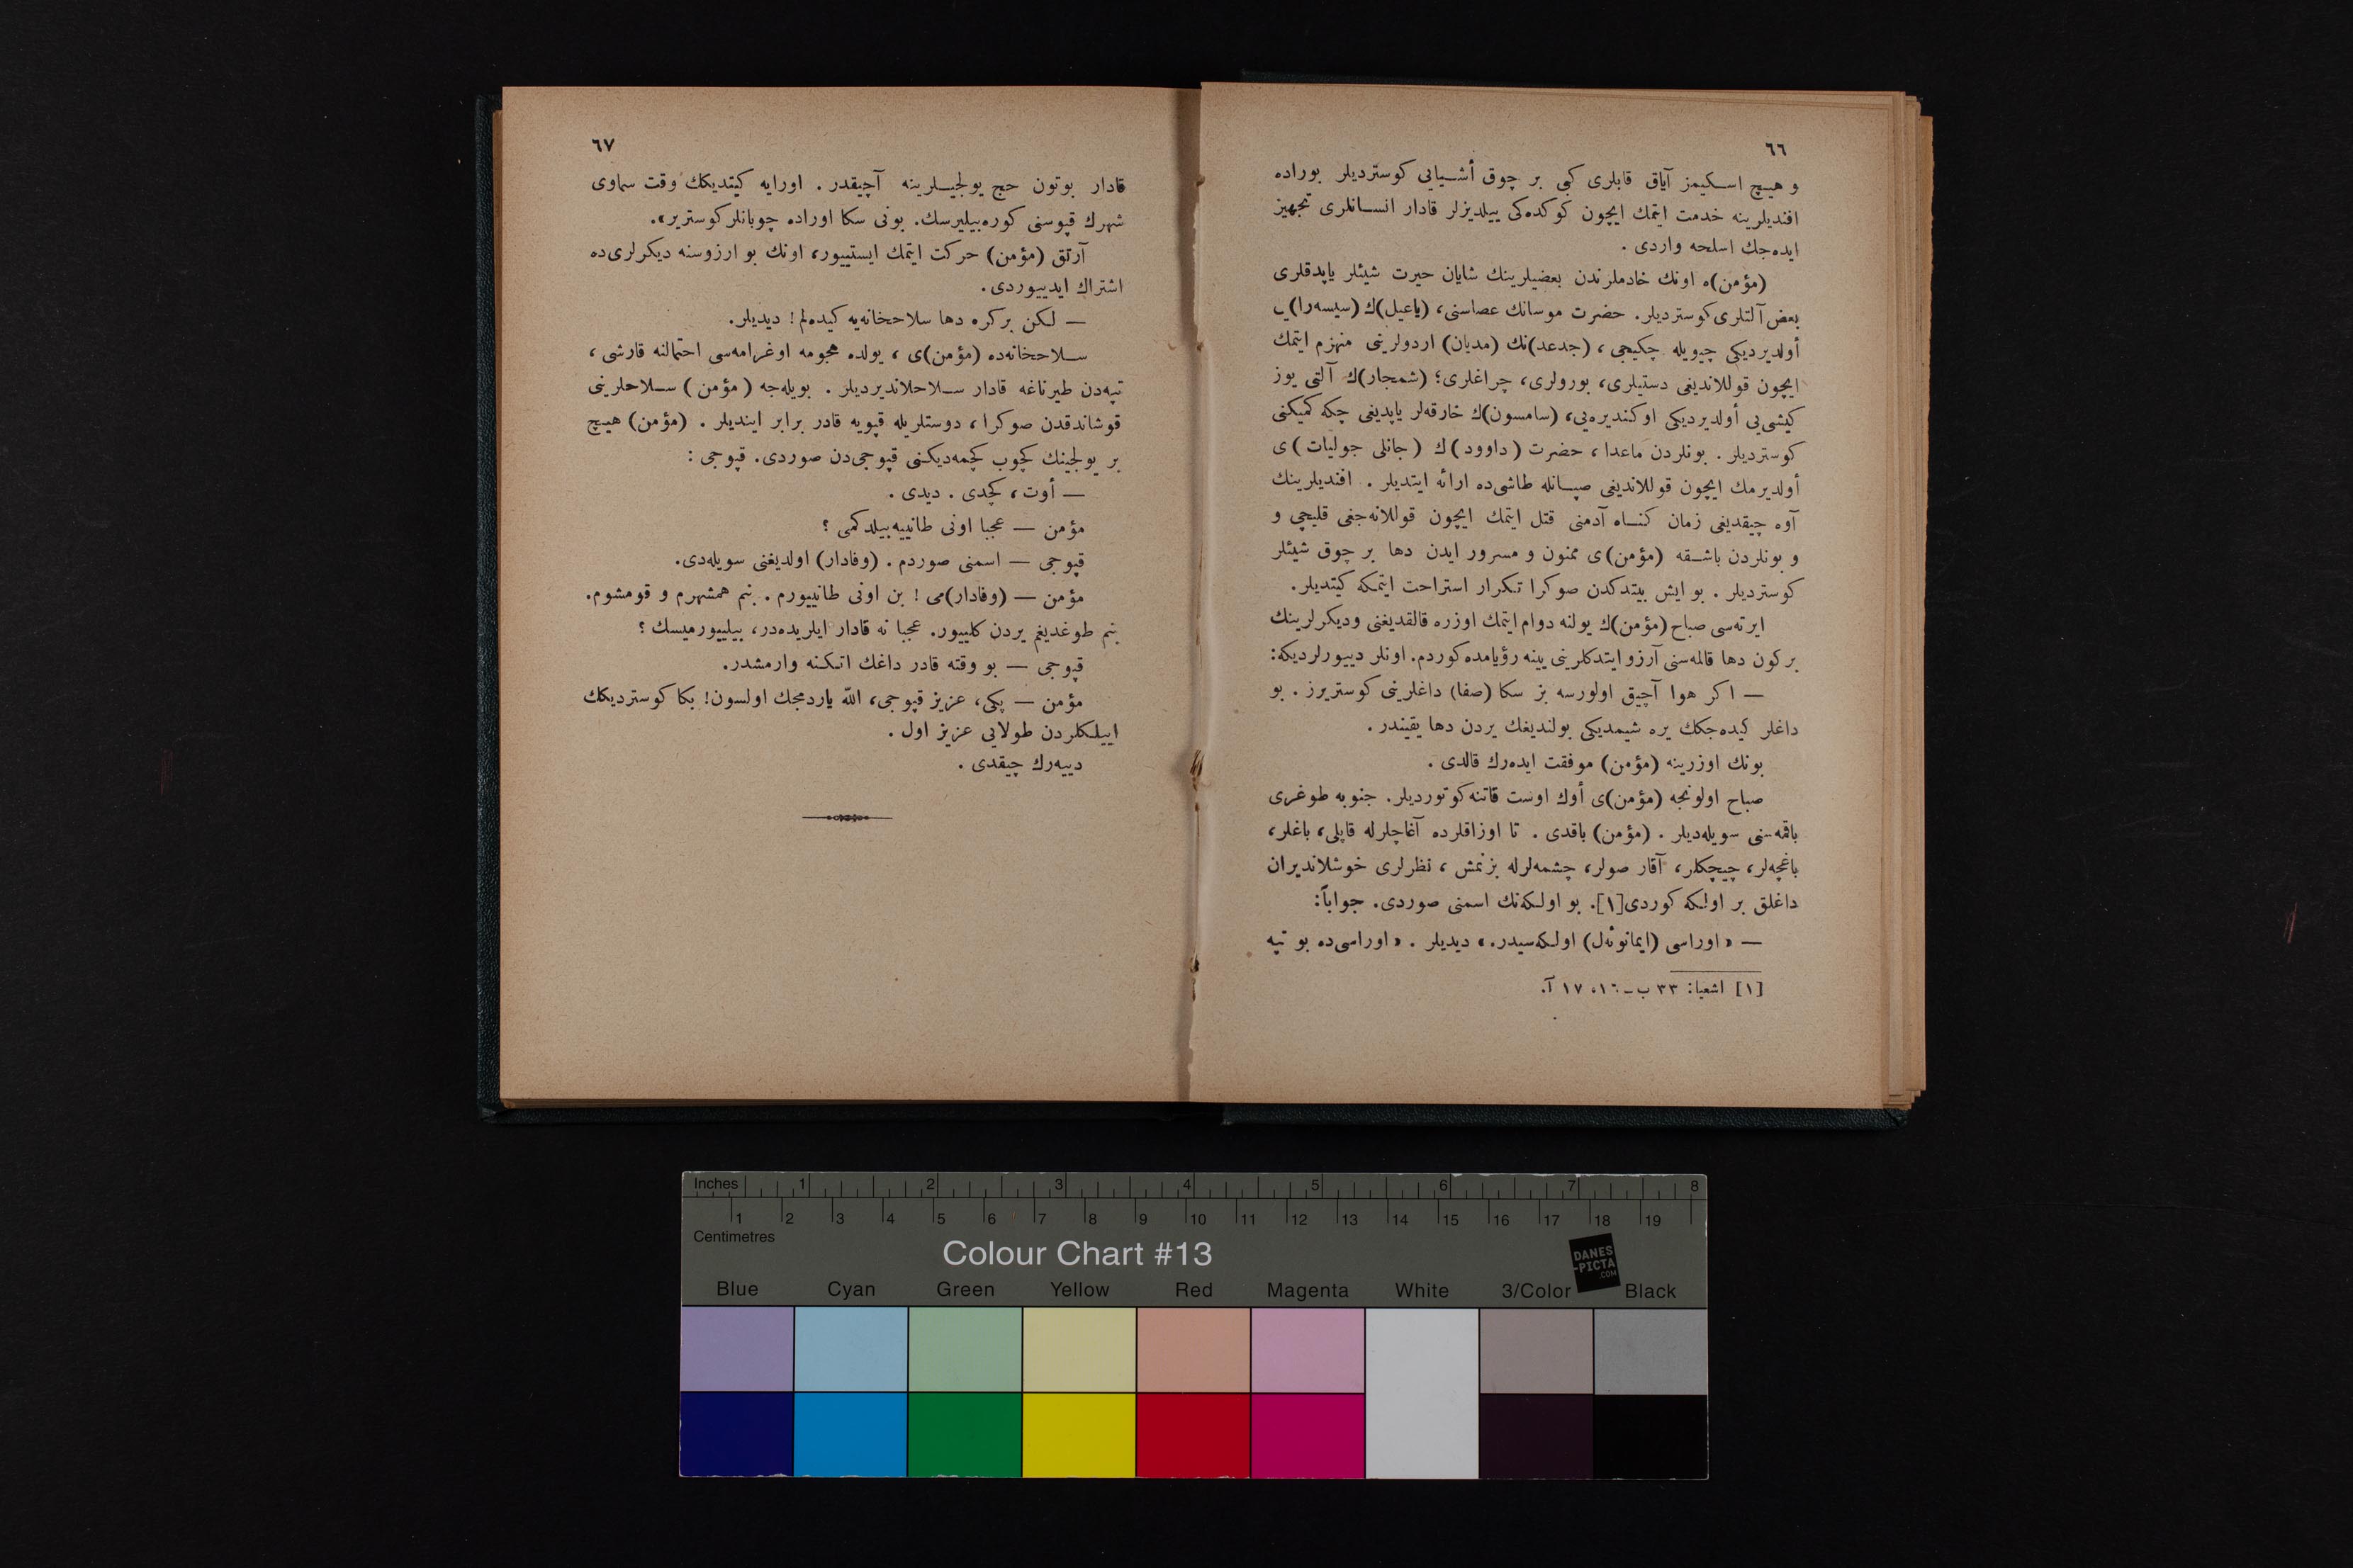 ٦٦
و هیچ اسکیمز آیاق قابلری کبی بر چوق أشیایی کوستردیلر بوراده
افندیلرینه خدمت ایتمك ایچون کوکده‌کی ییلدیزلر قادار انسانلری تجهیز
ایده‌جك اسلحه واردی .
(مؤمن)ه اونك خادملرندن بعضیلرینك شایان حیرت شیئلر یاپدقلری
بعض آلتلری کوستردیلر. حضرت موسانك عصاسنی، (یاعیل)ك (سیسه‌را)یی
أولدیردیکی چیویله چکیجی ، (جدعد)نك (مدیان) اردولرینی منهزم ایتمك
ایچون قوللاندیغی دستیلری، بورولری، چراغلری؛ (شمجار)ك آلتی یوز
کیشی‌یی أولدیردیکی اوکندیره‌یی، (سامسون)ك خارقه‌لر یاپدیغی چکه کمیکنی
کوستردیلر . بونلردن ماعدا ، حضرت (داوود)ك (جانلی جولیات)ی
أولدیرمك ایچون قوللاندیغی صپانله طاشی‌ده ارائه ایتدیلر . افندیلرینك
آوه چیقدیغی زمان کناه آدمنی قتل ایتمك ایچون قوللانه‌جغی قلیجی و
و بونلردن باشقه (مؤمن)ی ممنون و مسرور ایدن دها بر چوق شیئلر
کوستردیلر . بو ایش بیتدکدن صوکرا تکرار استراحت ایتمکه کیتدیلر.
ایرته‌سی صباح (مؤمن)ك یولنه دوام ایتمك اوزره قالقدیغنی ودیکرلرینك
برکون دها قالمه‌سنی آرزو ایتدکلرینی یینه رؤیامده کوردم. اونلر دییورلردیکه:
— اکر هوا آچیق اولورسه بز سکا (صفا) داغلرینی کوستریرز . بو
داغلر کیده‌جکك یره شیمدیکی بولندیغك یردن دها یقیندر .
بونك اوزرینه (مؤمن) موفقت ایده‌رك قالدی .
صباح اولونجه (مؤمن)ی أوك اوست قاتنه کوتوردیلر. جنوبه طوغری
باقمه‌سنی سویله‌دیلر . (مؤمن) باقدی . تا اوزاقلرده آغاچلرله قاپلی، باغلر،
باغچه‌لر، چیچکلر، آقار صولر، چشمه‌لرله بزنمش ، نظرلری خوشلاندیران
داغلق بر اولکه کوردی[١]. بو اولکه‌نك اسمنی صوردی. جواباً:
— « اوراسی (ایمانوئه‌ل) اولکه‌سیدر.» دیدیلر . « اوراسی‌ده بو تپه
[١] اشعیا: ٣٣ ب ـ ١٦، ١٧ آ.
٦٧
قادار بوتون حج یولجیلرینه آچیقدر . اورایه کیتدیکك وقت سماوی
شهرك قپوسنی کوره‌بیلیرسك. بونی سکا اوراده چوبانلر کوستریر».
آرتق (مؤمن) حرکت ایتمك ایستییور، اونك بو ارزوسنه دیکرلری‌ده
اشتراك ایدییوردی.
— لکن برکره دها سلاحخانه‌یه کیده‌لم ! دیدیلر.
سلاحخانه‌ده (مؤمن)ی ، یولده هجومه اوغرامه‌سی احتمالنه قارشی ،
تپه‌دن طیرناغه قادار سلاحلاندیردیلر . بویله‌جه (مؤمن) سلاحلرینی
قوشاندقدن صوکرا ، دوستلریله قپویه قادر برابر ایندیلر . (مؤمن) هیچ
بر یولجینك کچوب کچمه‌دیکنی قپوجی‌دن صوردی. قپوجی :
— أوت، کچدی . دیدی .
مؤمن — عجبا اونی طانییه‌بیلدکمی ؟
قپوجی — اسمنی صوردم . (وفادار) اولدیغنی سویله‌دی.
مؤمن — (وفادار)می ! بن اونی طانییورم . بنم همشهرم و قومشوم.
بنم طوغدیغم یردن کلییور. عجبا نه قادار ایلریده‌در، بیلییورمیسك ؟
قپوجی — بو وقته قادر داغك اتکنه وارمشدر.
مؤمن — پکی، عزیز قپوجی، اللّٰه یاردمجك اولسون! بکا کوستردیکك
اییلکلردن طولایی عزیز اول .
دییه‌رك چیقدی .
Inches 1 2 3 4 5 6 7 8
1 2 3 4 5 6 7 8 9 10 11 12 13 14 15 16 17 18 19
Centimetres
Colour Chart #13
DANES
-PICTA
.COM
Blue Cyan Green Yellow Red Magenta White 3/Color Black